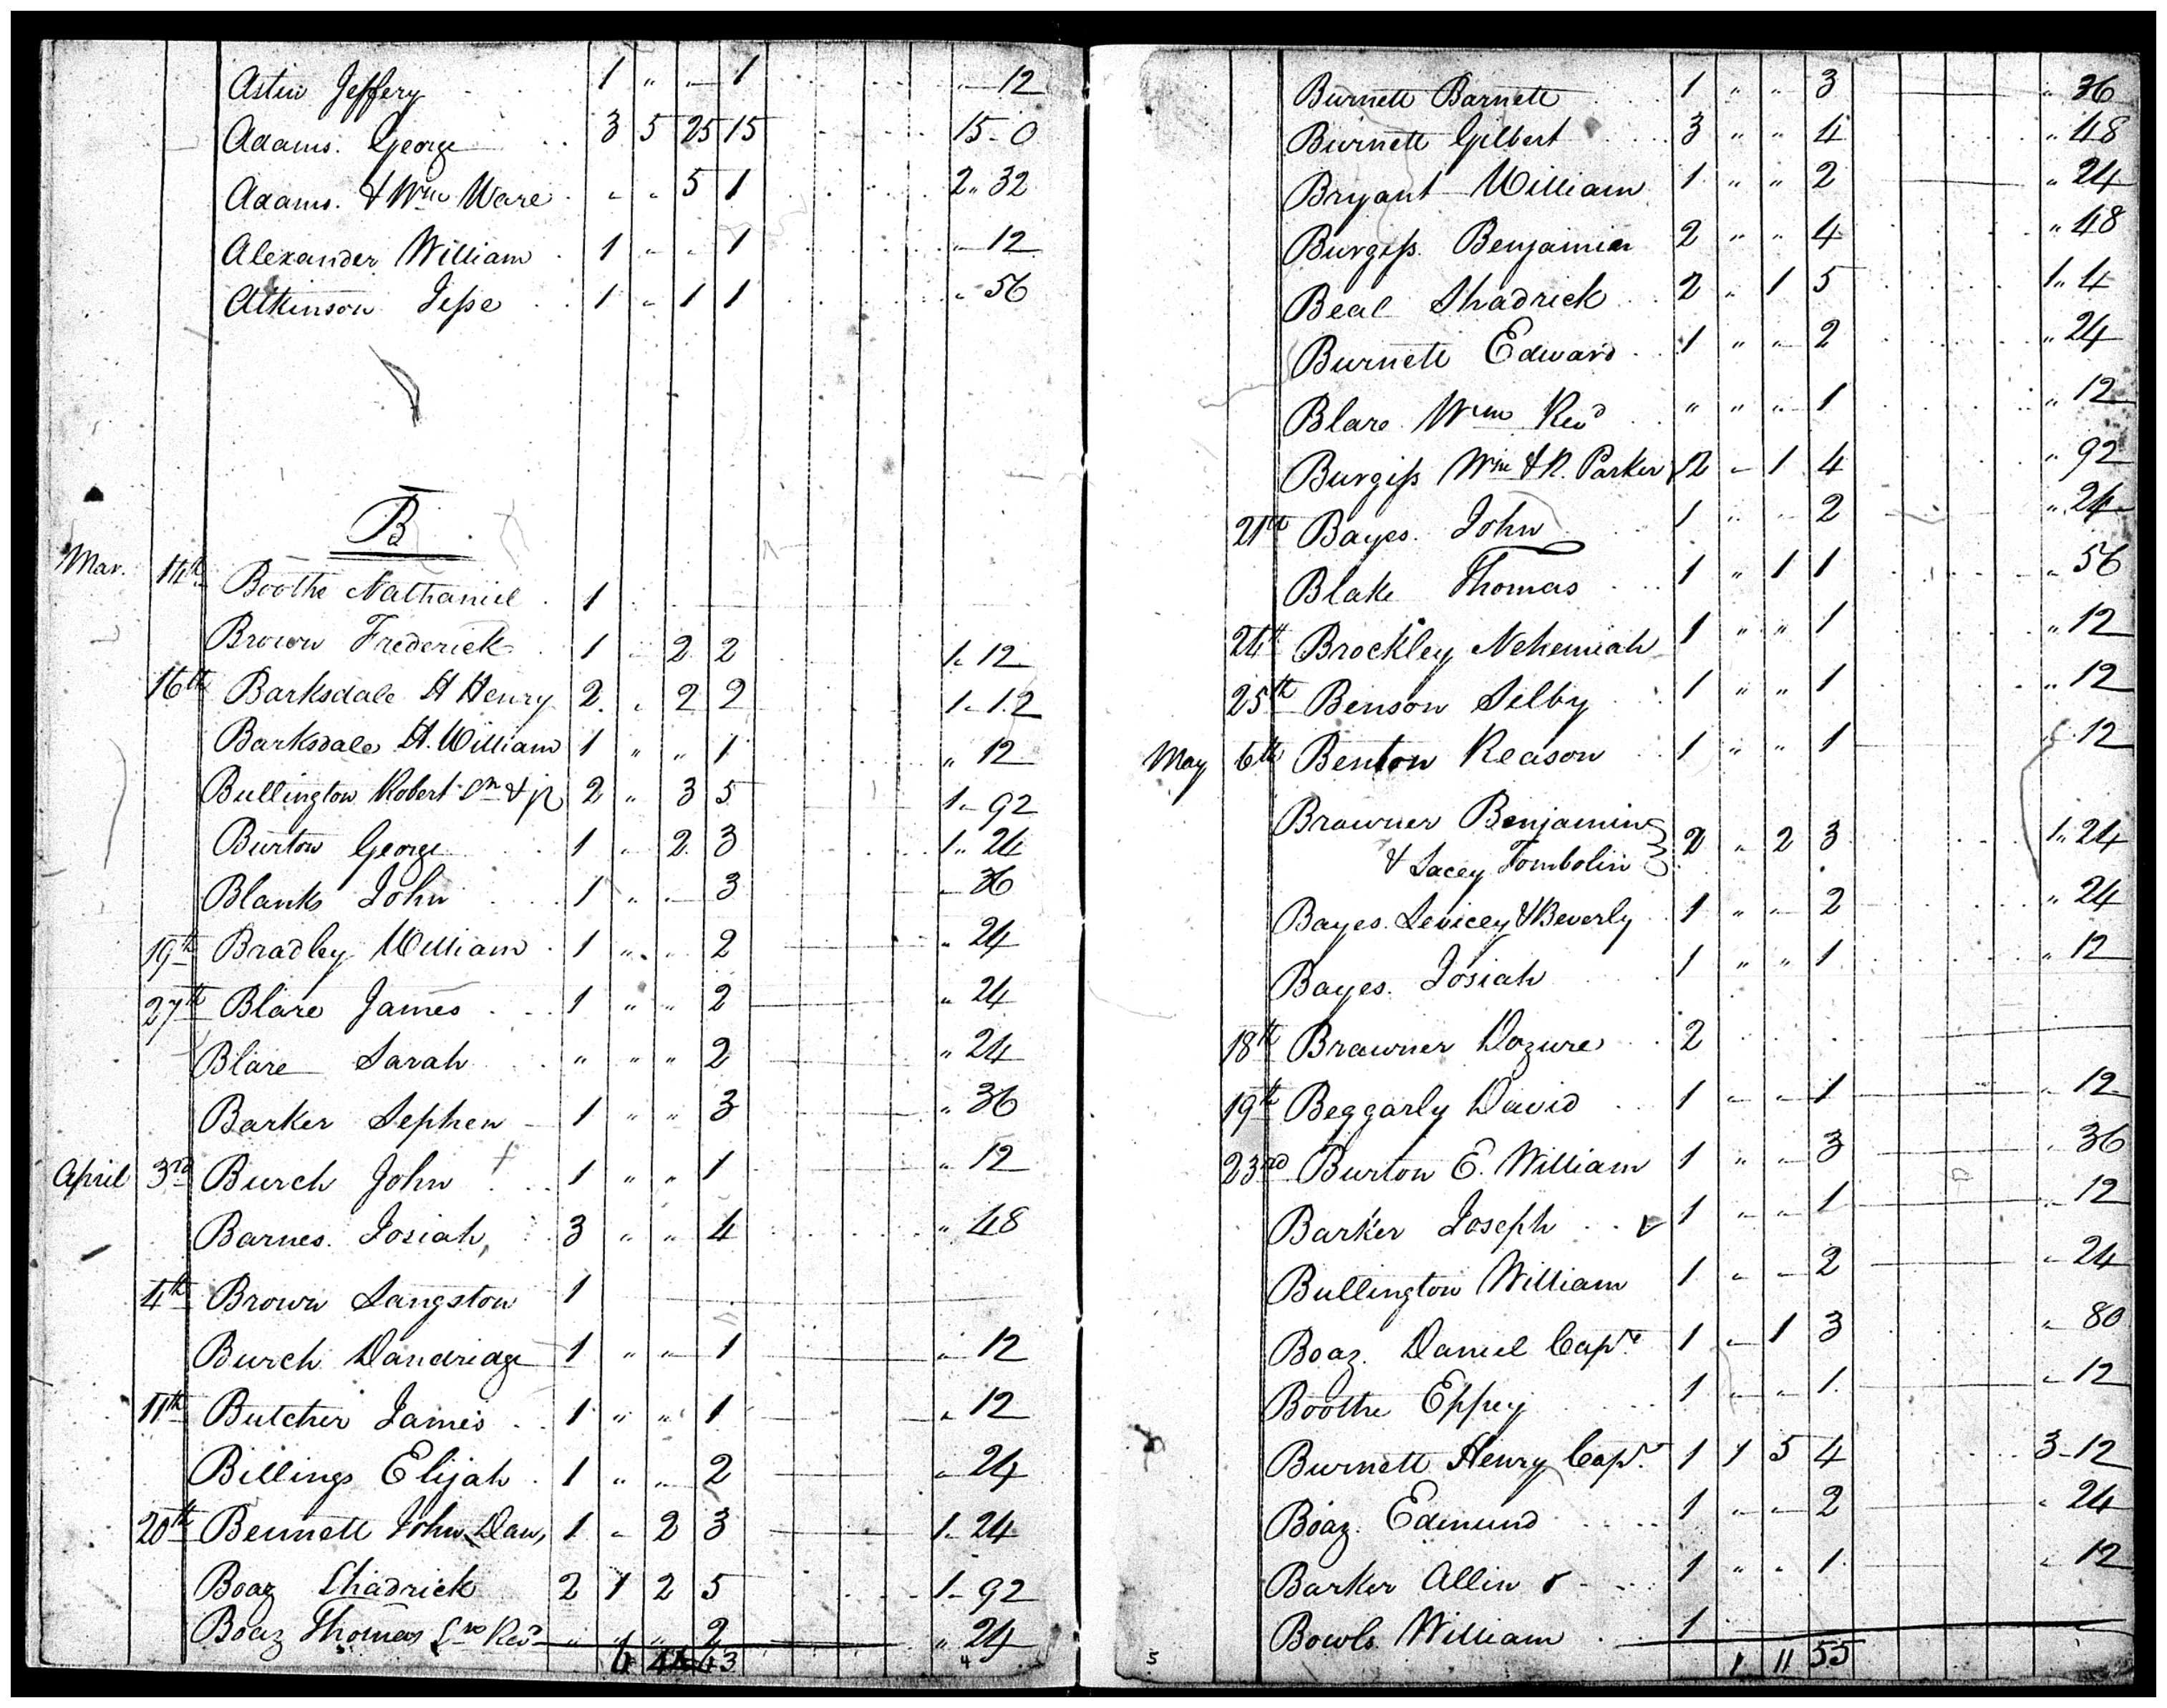 Astin Jeffery 1 " " 1 " 12
Adams. George 3 5 25 15 15 - 0
Adams. & Wm Ware " " 5 1 2 " 32
Alexander William 1 " " 1 " 12
Atkinson Jesse 1 " 1 1 " 56
B
Mar. 14th Boothe Nathaniel 1
Brown Frederick 1 " 2 2 1 " 12
16th Barksdale H Henry 2 " 2 2 1 " 12
Barksdale H. William 1 " " 1 " 12
Bullington Robert Sn & jr 2 " 3 5 1 " 92
Burton George 1 " 2 3 1 " 24
Blanks John 1 " " 3 " 36
19th Bradley William 1 " " 2 " 24
27th Blare James 1 " " 2 " 24
Blare Sarah " " " 2 " 24
Barker Sephen 1 " " 3 " 36
April 3rd Burch John 1 " " 1 " 12
Barnes. Josiah 3 " " 4 " 48
4th Brown Langston 1
Burch Dandridge 1 " " 1 " 12
11th Butcher James 1 " " 1 " 12
Billings Elijah 1 " " 2 " 24
20th Bennett John Dan, 1 " 2 3 1 " 24
Boaz Shadrick 2 1 2 5 1 - 92
Boaz Thomas " " " 2 " 24
6 43
4
Burnett Barnett 1 " " 3 " 36
Burnett Gilbert 3 " " 4 " 48
Bryant William 1 " " 2 " 24
Burgiss Benjamin 2 " " 4 " 48
Beal Shadrick 2 " 1 5 1 " 4
Burnett Edward 1 " " 2 " 24
Blare Wm Revd " " " 1 " 12
Burgiss Wm & R. Parker 2 " 1 4 " 92
21st Bayes. John 1 " " 2 " 24
Blake Thomas 1 " 1 1 " 56
24th Brockley Nehemiah 1 " " 1 " 12
25th Benson Selby 1 " " 1 " 12
May 6th Benton Reason 1 " " 1 " 12
Brawner Benjamin
& Lacey Tombolin 2 " 2 3 1 " 24
Bayes. Levicey & Beverly 1 " " 2 " 24
Bayes. Josiah 1 " " 1 " 12
18th Brawner Dozure 2
19th Beggarly David 1 " " 1 " 12
23rd Burton E. William 1 " " 3 " 36
Barker Joseph 1 " " 1 " 12
Bullington William 1 " " 2 " 24
Boaz. Daniel Capt. 1 " 1 3 " 80
Boothe Eppey 1 " " 1 " 12
Burnett Henry Capt. 1 1 5 4 3 - 12
Boaz. Edmund 1 " " 2 " 24
Barker Allin 1 " " 1 " 12
Bowls William 1
5 1 11 55